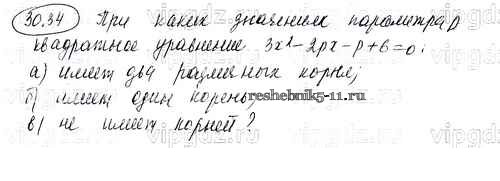 30.34 При каких значениях параметра p
квадратное уравнение 3x² - 2px - p + 6 = 0:
а) имеет два различных корня;
б) имеет один корень;
reshebnik5-11.ru
в) не имеет корней?
vipgdz.com